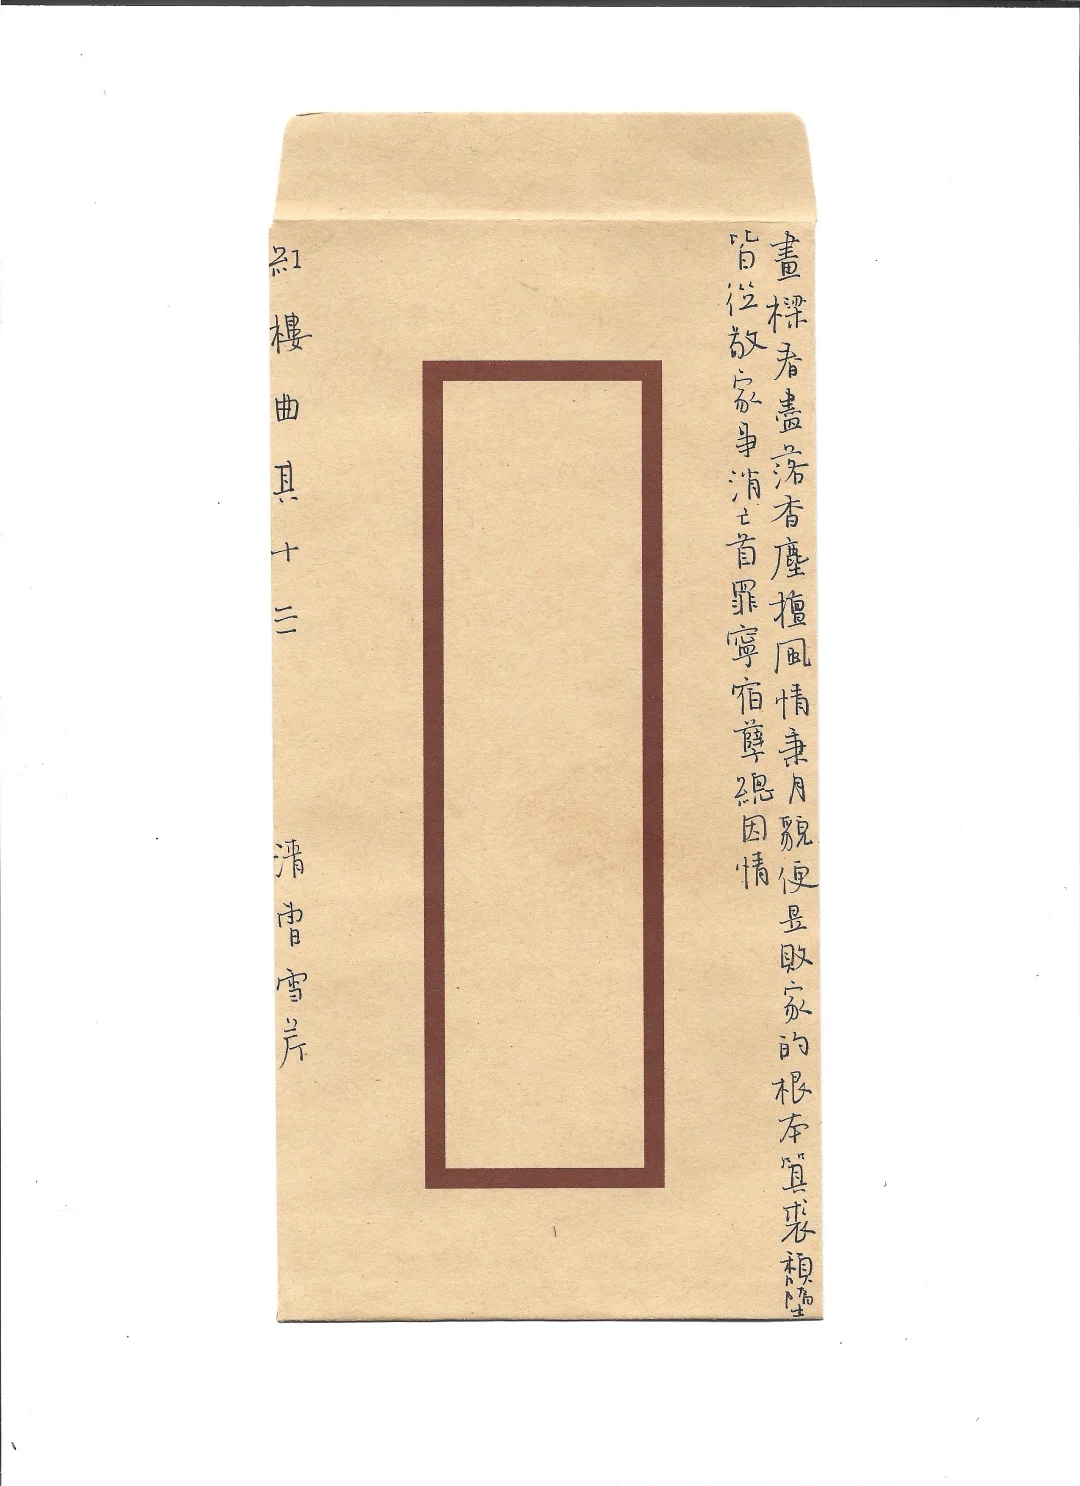 畫樑春盡落香塵擅風情秉月貌便是敗家的根本箕裘頹墮
皆從敬家事消亡首罪寧宿孽總因情
紅樓曲其十三 清曹雪芹